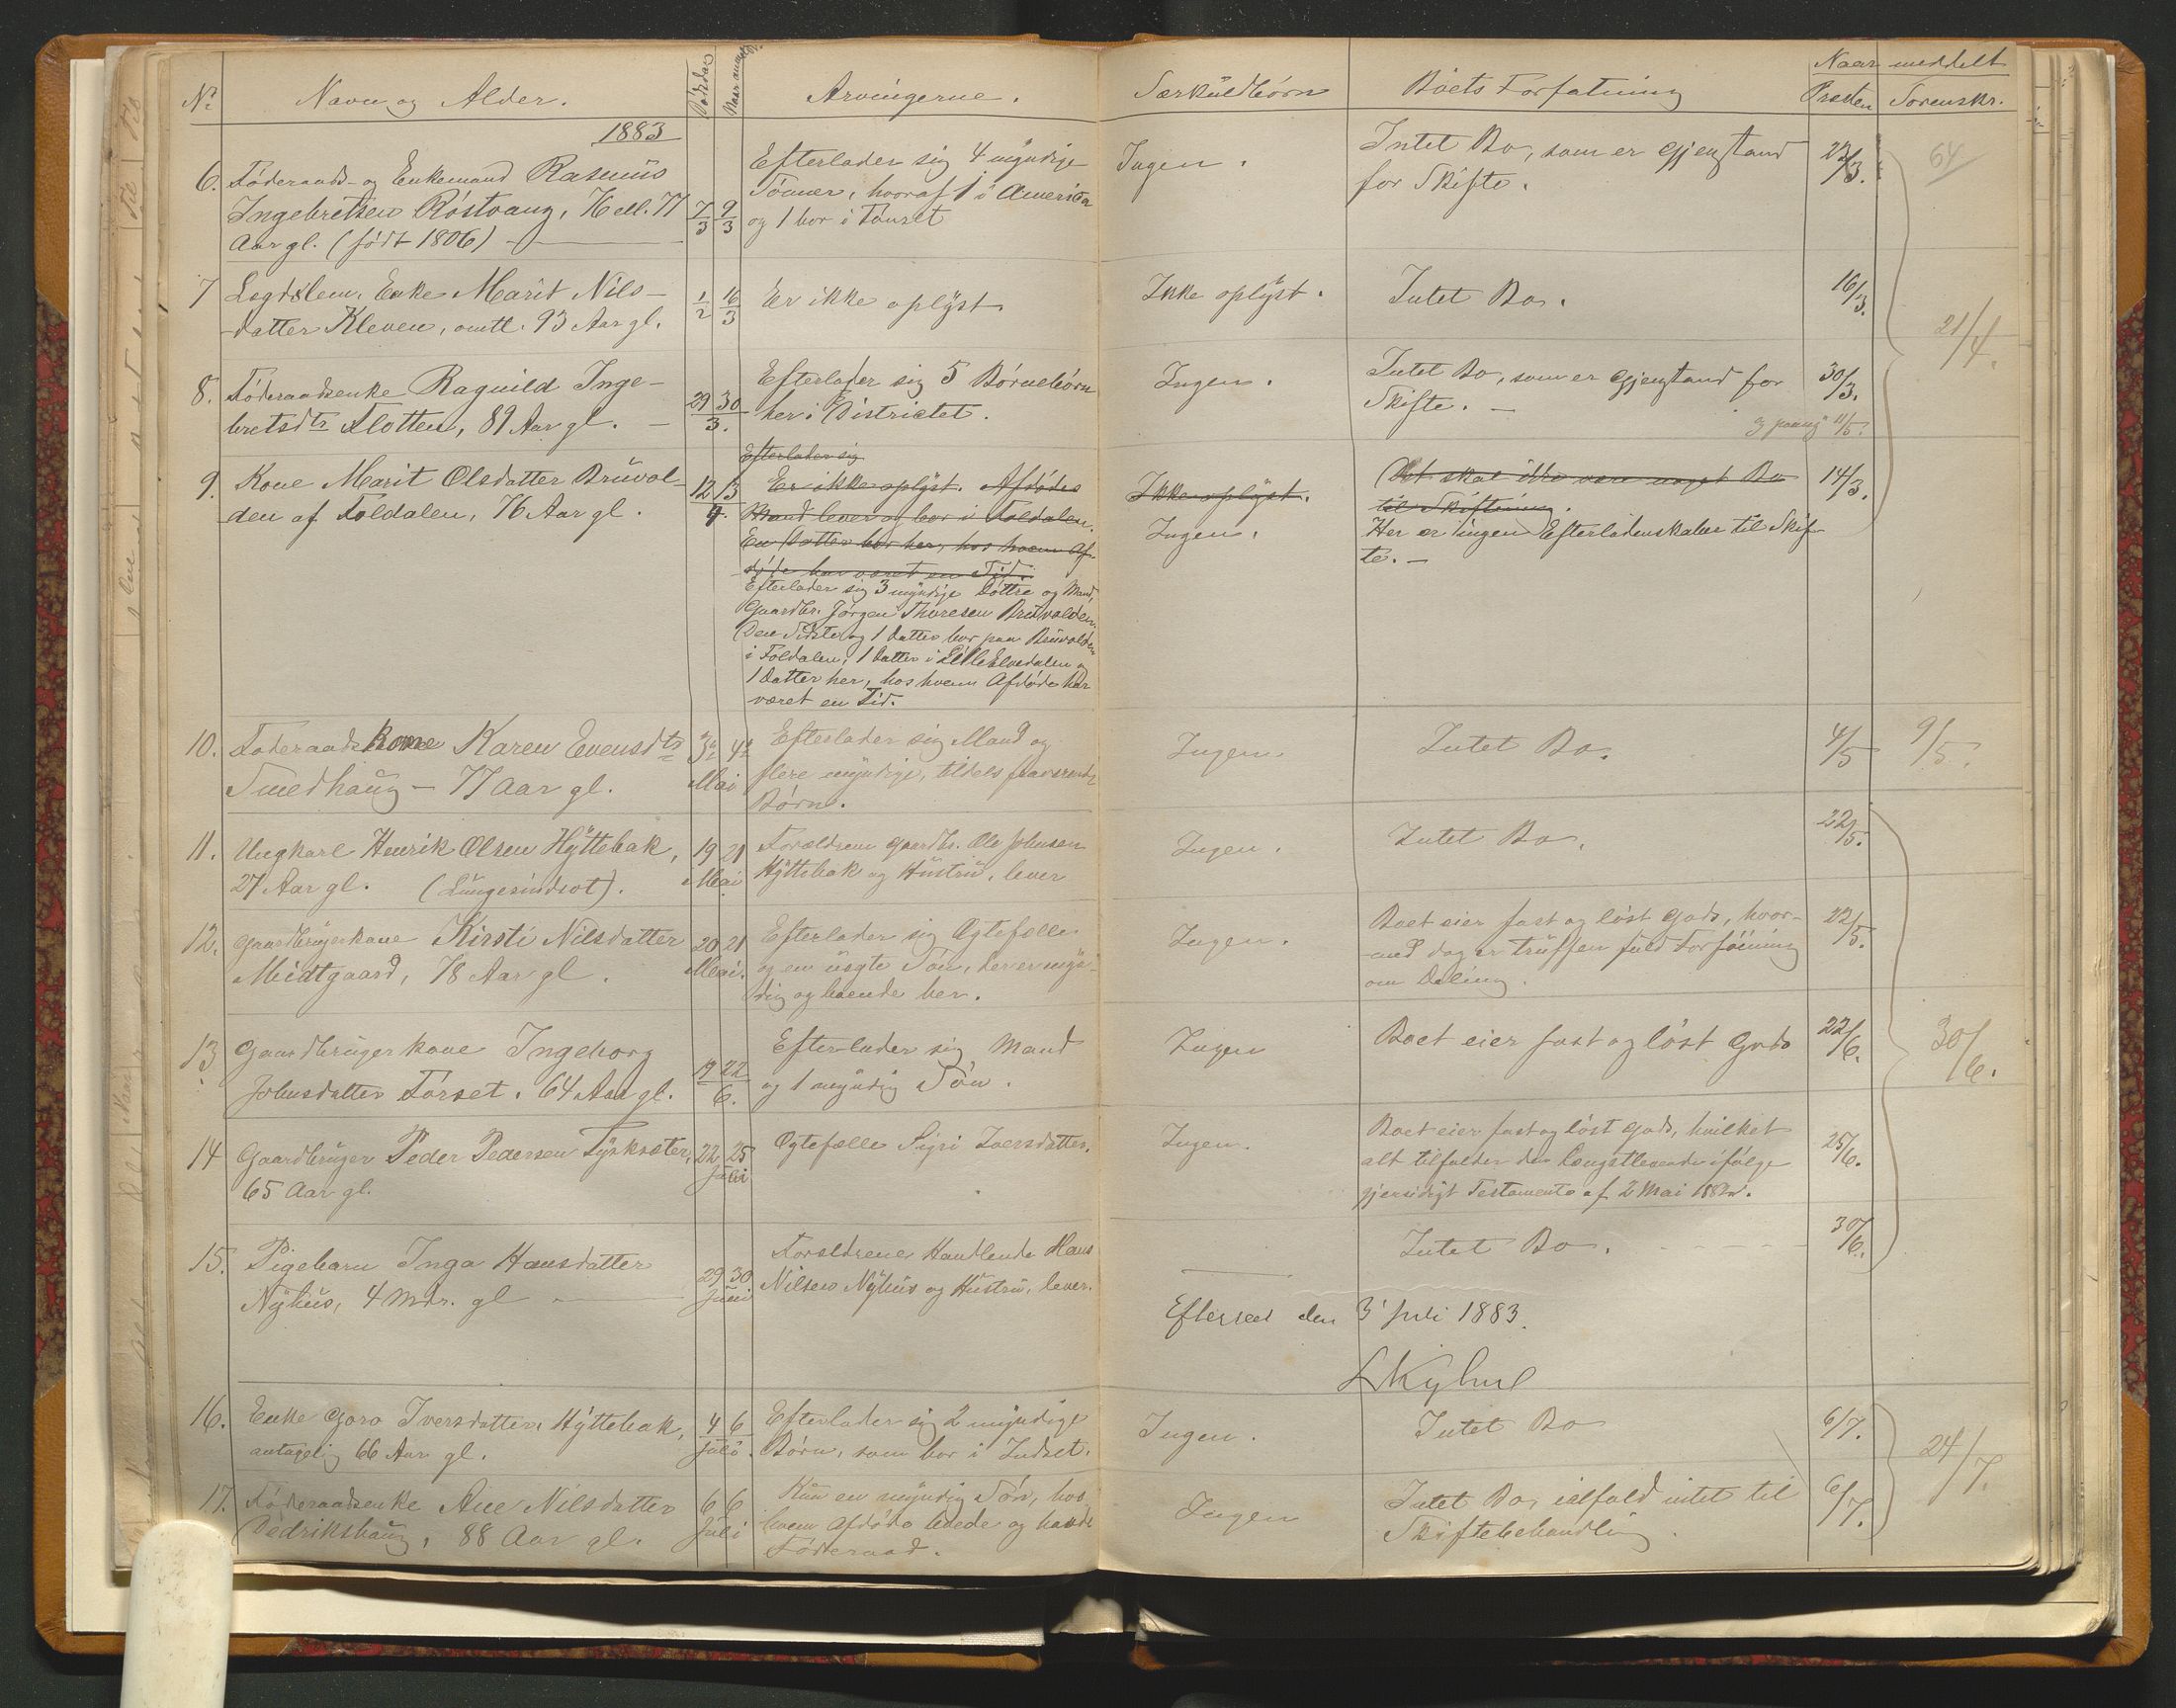 Nº Navn og Alder. Dødsdag Naar anmeldt. Arvingerne. Særkuldbørn Boets Forfatning Naar meddelt
Præsten Sorenskr.
1883
6. Føderaads- og Enkemand Rasmus
Ingebretsen Röstvang, 76 ell. 77
Aar gl. (født 1806)
7/3 9/3
Efterlader sig 4 myndige
Sønner, hvoraf 1 i Amerika
og 1 bor i Tönset
Ingen.
Intet Bo, som er Gjenstand
for Skifte.
64
7 Lægdslem, Enke Marit Nils-
datter Kleven, omtl. 93 Aar gl.
1/2 16/3
Er ikke oplyst.
Ikke oplyst.
Intet Bo.
16/3.
21/4.
8. Føderaadsenke Ragnild Inge-
bretsdtr Flotten, 89 Aar gl.
29 30
3.
Efterlader sig 5 Børnebørn
her i Districtet.
Ingen.
Intet Bo, som er Gjenstand for
Skifte. —
30/3.
11/5.
9. Kone Marit Olsdatter Brüvol-
den af Foldalen, 76 Aar gl.
12 13
4.
Efterlader sig
Er ikke oplyst. Afdødes
Mand lever og bor i Foldalen.
En Datter bor her, hos hvem Af-
døde har været en Tid.
Efterlader sig 3 myndige Døttre og Mand,
Gaardbr. Jørgen Thoresen Brüvolden.
Den Sidste og 1 Datter bor paa Brüvolden
i Foldalen, 1 Datter i Lille Elvedalen og
1 Datter her, hos hvem Afdøde har
været en Tid.
Ikke oplyst.
Ingen.
Det skal ikke være noget Bo
til Skiftning.
Her er ingen Efterladenskaber til Skif-
te. —
14/3.
10. Føderaadskone Karen Evensdtr
Smedhaug — 77 Aar gl.
Mai
Efterlader sig Mand og
flere myndige, tildels fraværende
Børn.
Ingen.
Intet Bo.
4/5
9/5.
11. Ungkarl Henrik Olsen Hyttebak,
27 Aar gl. (Lungesindsot).
19 21
Mai
Forældrene Gaardbr. Ole Johnsen
Hyttebak og Hustru, lever
Ingen.
Intet Bo.
22/5.
12. Gaardbrugerkone Kirsti Nilsdatter
Midtgaard, 78 Aar gl.
20 21
Mai.
Efterlader sig Ægtefælle
og en uægte Søn, der er myn-
dig og boende her.
Ingen.
Boet eier fast og løst Gods, hvor-
med dog er truffen fuld Forføining
om Deling.
22/5.
13. Gaardbrugerkone Ingeborg
Johnsdatter Torset. 64 Aar gl.
19 22
6.
Efterlader sig Mand
og 1 myndig Søn.
Ingen
Boet eier fast og løst Gods
22/6.
30/6.
14 Gaardbruger Peder Pedersen Tyskseter,
65 Aar gl.
22 25
Juni
Ægtefælle Sigri Iversdatter.
Ingen.
Boet eier fast og løst Gods, hvilket
alt tilfalder den længstlevende ifølge
gjensidigt Testamente af 2 Mai 1882.
25/6.
15. Pigebarn Inga Hansdatter
Nyhus, 4 Mdr. gl
29 30
Juni
Forældrene, Handlende Hans
Nilsen Nyhus og Hustru, lever.
Intet Bo.
30/6.
Efterseet den 3 Juli 1883.
16. Enke Goro Iversdatter Hyttebak,
antagelig 66 Aar gl.
4 6
Juli.
Efterlader sig 2 myndige
Børn, som bor i Indset.
Ingen.
Intet Bo
6/7.
24/7.
17. Føderaadsenke Ane Nilsdatter
Dedrikshaug, 88 Aar gl.
6 6
Juli
Kun en myndig Søn, hos
hvem Afdøde levede og havde
Føderaad.
Ingen
Intet Bo, ialfald intet til
Skiftebehandling.
6/7.